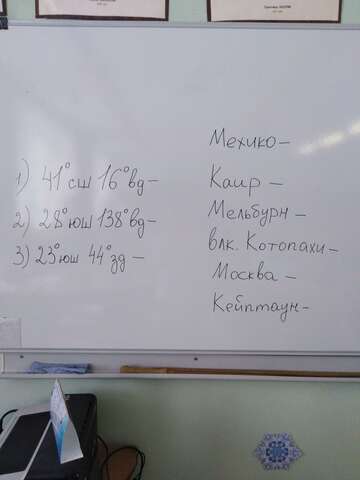 1) 41° сш 16° вд –
2) 28° юш 138° вд –
3) 23° юш 44° зд –
Мехико –
Каир –
Мельбурн –
влк. Котопахи –
Москва –
Кейптаун –